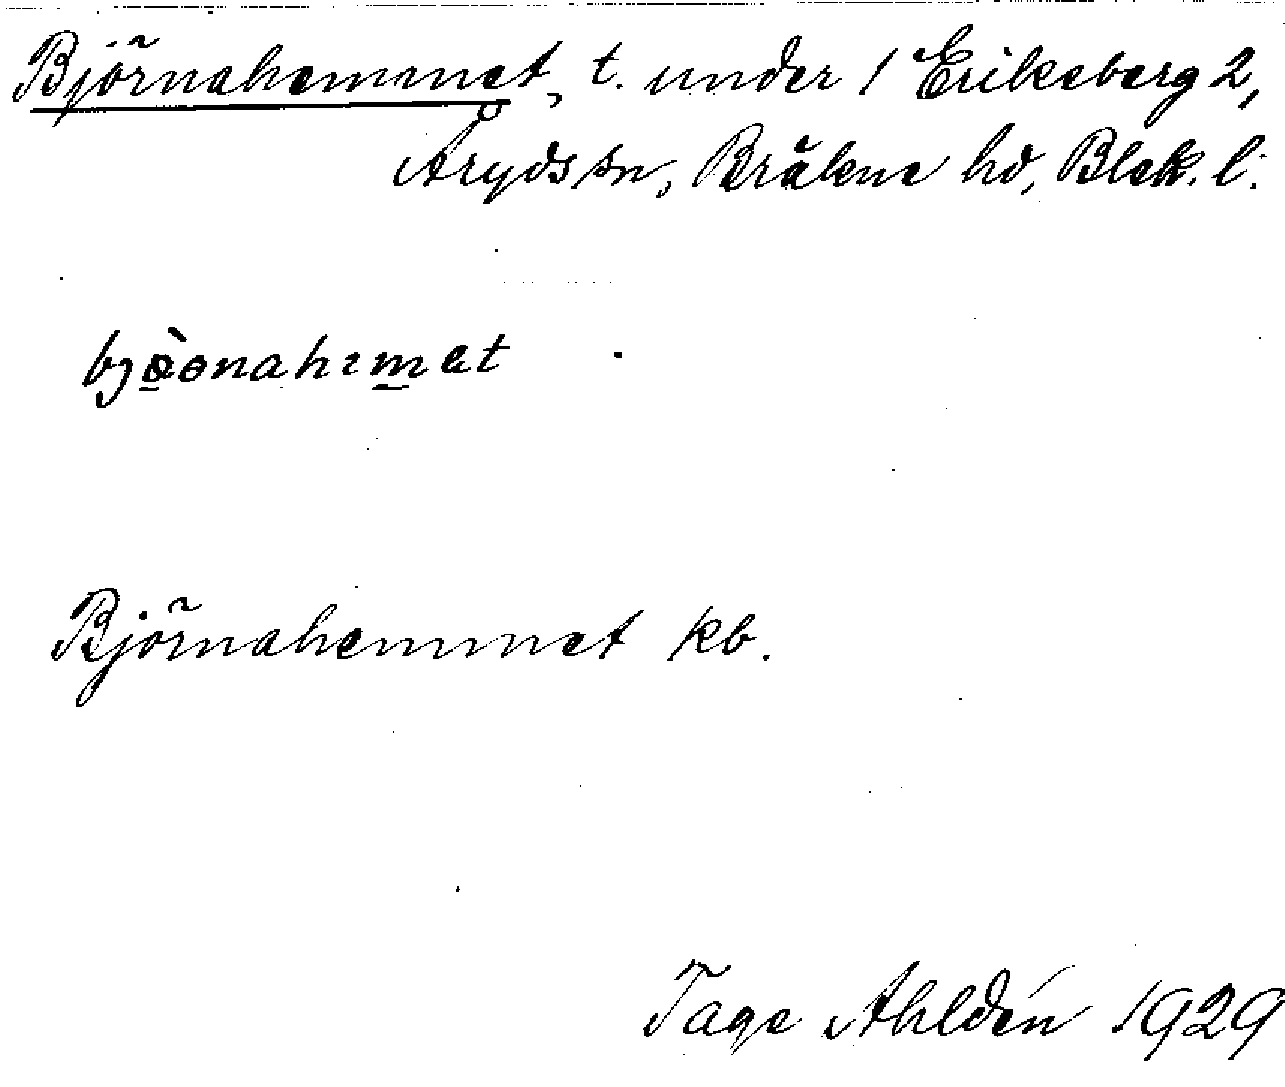 Björnahemmet, t. under 1 Eriksberg 2,
Åryds sn, Bräkne hd, Blek. l.
Björnahemmet kb.
Tage Ahldén 1929